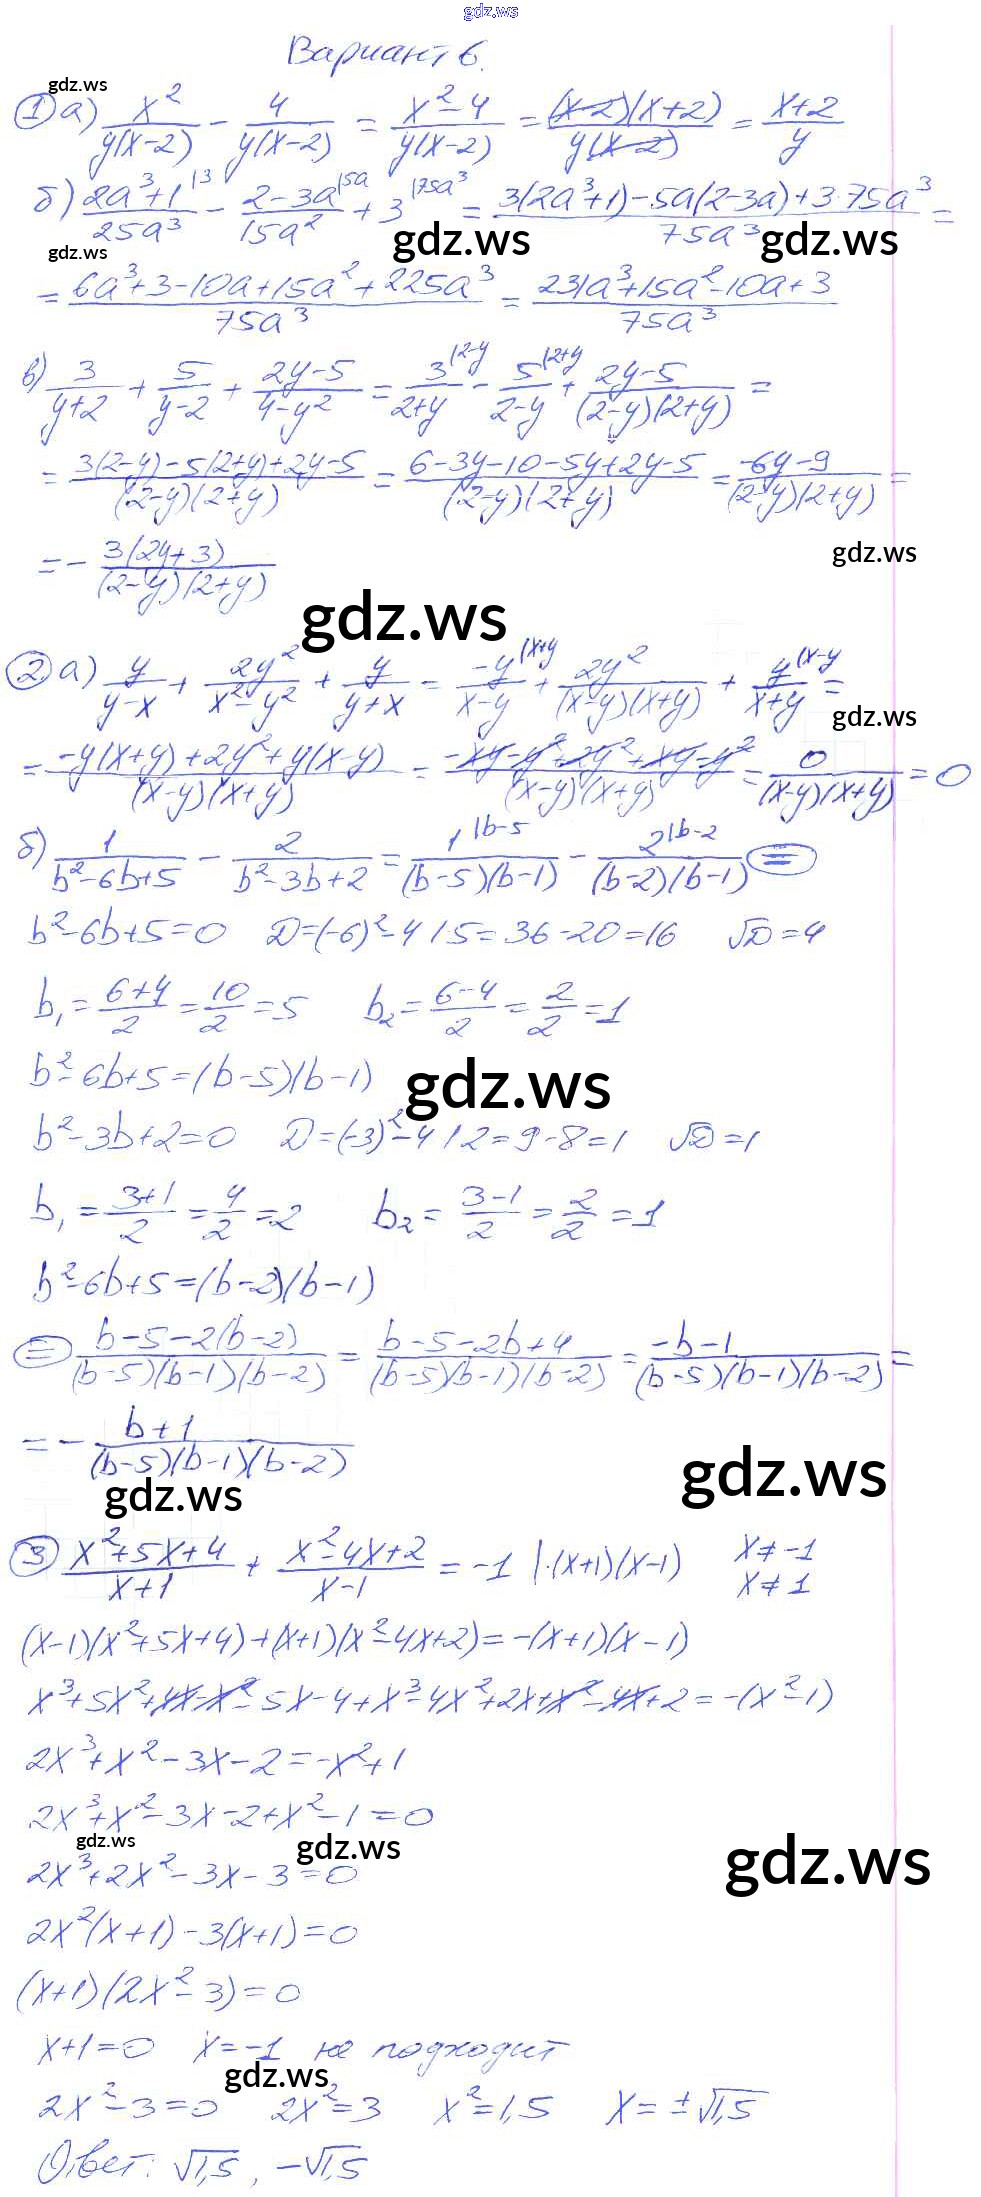 gdz.ws
Вариант 6.
gdz.ws
① а) x²/y(x-2) - 4/y(x-2) = x²-4/y(x-2) = (x-2)(x+2)/y(x-2) = x+2/y
б) 2a³+1|3/25a³ - 2-3a|5a/15a² + 3|75a³ = 3(2a³+1)-5a(2-3a)+3·75a³/75a³ =
gdz.ws gdz.ws gdz.ws
= 6a³+3-10a+15a²+225a³/75a³ = 231a³+15a²-10a+3/75a³
в) 3/y+2 + 5/y-2 + 2y-5/4-y² = 3|2-y/2+y - 5|2+y/2-y + 2y-5/(2-y)(2+y) =
= 3(2-y)-5(2+y)+2y-5/(2-y)(2+y) = 6-3y-10-5y+2y-5/(2-y)(2+y) = -6y-9/(2-y)(2+y) =
gdz.ws
= - 3(2y+3)/(2-y)(2+y)
gdz.ws
② а) y/y-x + 2y²/x²-y² + y/y+x = -y|x+y/x-y + 2y²/(x-y)(x+y) + y|x-y/x+y =
gdz.ws
= -y(x+y)+2y²+y(x-y)/(x-y)(x+y) = -xy-y²+2y²+xy-y²/(x-y)(x+y) = 0/(x-y)(x+y) = 0
б) 1/b²-6b+5 - 2/b²-3b+2 = 1|b-5/(b-5)(b-1) - 2|b-2/(b-2)(b-1) =
b²-6b+5=0 D=(-6)²-4·1·5=36-20=16 √D=4
b₁=6+4/2=10/2=5 b₂=6-4/2=2/2=1
b²-6b+5=(b-5)(b-1)
gdz.ws
b²-3b+2=0 D=(-3)²-4·1·2=9-8=1 √D=1
b₁=3+1/2=4/2=2 b₂=3-1/2=2/2=1
b²-6b+5=(b-2)(b-1)
= b-5-2(b-2)/(b-5)(b-1)(b-2) = b-5-2b+4/(b-5)(b-1)(b-2) = -b-1/(b-5)(b-1)(b-2) =
= - b+1/(b-5)(b-1)(b-2)
gdz.ws
gdz.ws
③ x²+5x+4/x+1 + x²-4x+2/x-1 = -1 |·(x+1)(x-1) x≠-1
x≠1
(x-1)(x²+5x+4)+(x+1)(x²-4x+2)=-(x+1)(x-1)
x³+5x²+4x-x²-5x-4+x³-4x²+2x+x²-4x+2=-(x²-1)
2x³+x²-3x-2=-x²+1
2x³+x²-3x-2+x²-1=0
gdz.ws gdz.ws gdz.ws
2x³+2x²-3x-3=0
2x²(x+1)-3(x+1)=0
(x+1)(2x²-3)=0
x+1=0 x=-1 не подходит
gdz.ws
2x²-3=0 2x²=3 x²=1,5 x=±√1,5
Ответ: √1,5, -√1,5